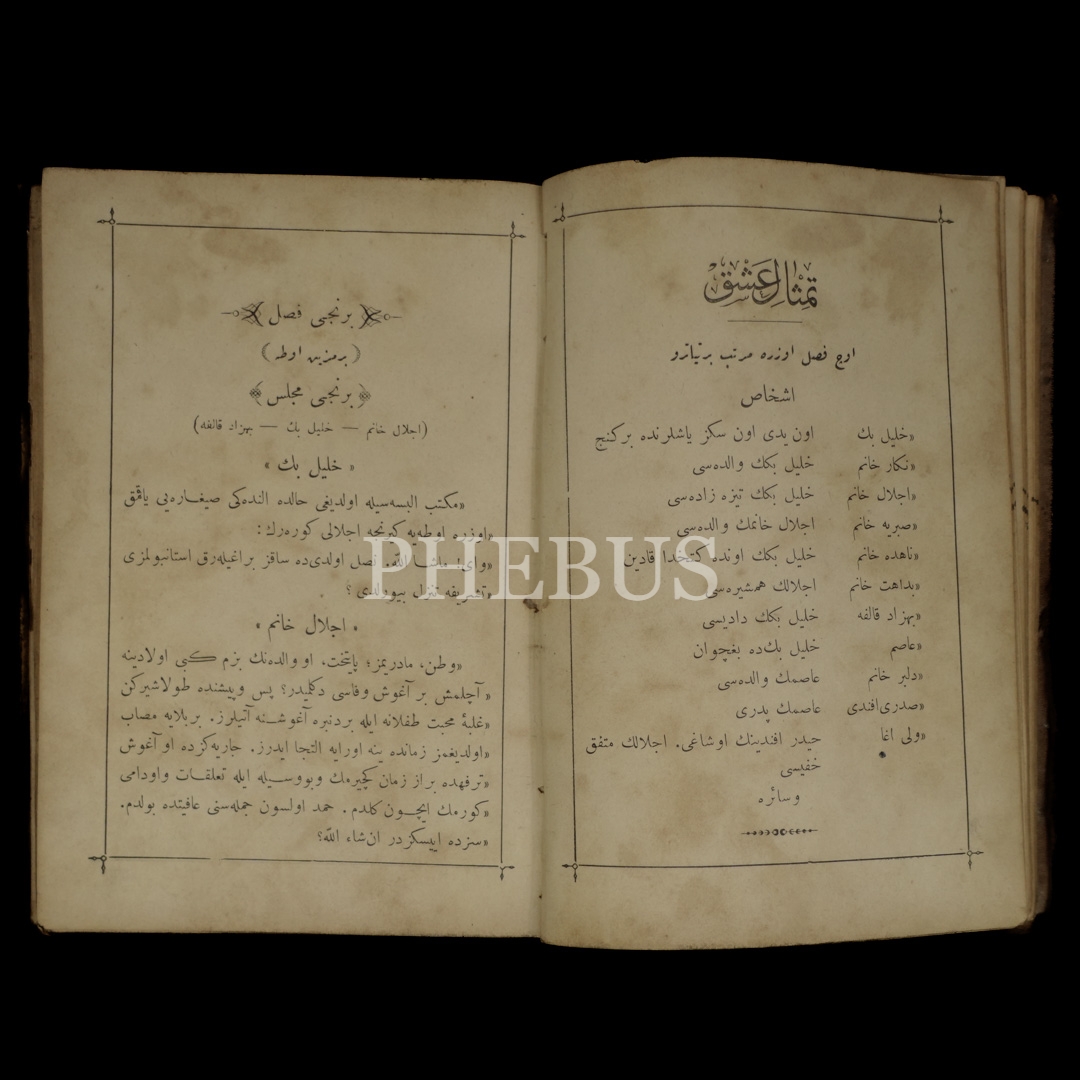 تمثال عشق
اوچ فصل اوزره مرتب بر تیاترو
اشخاص
«خلیل بك اون یدی اون سکز یاشلرنده بر کنج
«نکار خانم خلیل بکك والده‌سی
«اجلال خانم خلیل بکك تیزه زاده‌سی
«صبریه خانم اجلال خانمك والده‌سی
«ناهده خانم خلیل بکك اونده کتخدا قادین
«بداهت خانم اجلالك همشیره‌سی
«بهزاد قالفه خلیل بکك دادیسی
«عاصم خلیل بك‌ده بغچوان
«دلبر خانم عاصمك والده‌سی
«صدری‌افندی عاصمك پدری
«ولی اغا حیدر افندینك اوشاغی. اجلالك متفق
خفیسی
وسائره
برنجی فصل
(برمزین اوطه)
برنجی مجلس
(اجلال خانم — خلیل بك — بهزاد قالفه)
« خلیل بك »
«مکتب البسه‌سیله اولدیغی حالده النده‌کی صیغاره‌یی یاقمق
«اوزره اوطه‌یه کیرنجه اجلالی کوره‌رك :
«وای! ماشاالله. نصل اولدی‌ده ساقز براغیله‌رق استانبولمزی
«تشریفه تنزل بیورلدی ؟
« اجلال خانم »
«وطن، مادریمز؛ پایتخت، او والده‌نك بزم کبی اولادینه
«آچلمش بر آغوش وفاسی دکلمیدر؟ پس وپیشنده طولاشیرکن
«غلبۀ محبت طفلانه ایله بردنبره آغوشنه آتیلرز. بربلایه مصاب
«اولدیغمز زمانده ینه اورایه التجا ایدرز. جاریه‌کزده او آغوش
«ترفهده براز زمان کچیرمك وبووسیله ایله تعلقات واودامی
«کورمك ایچون کلدم. حمد اولسون جمله‌سنی عافیتده بولدم.
«سزده اییسکزدر ان‌شاء الله؟
PHEBUS